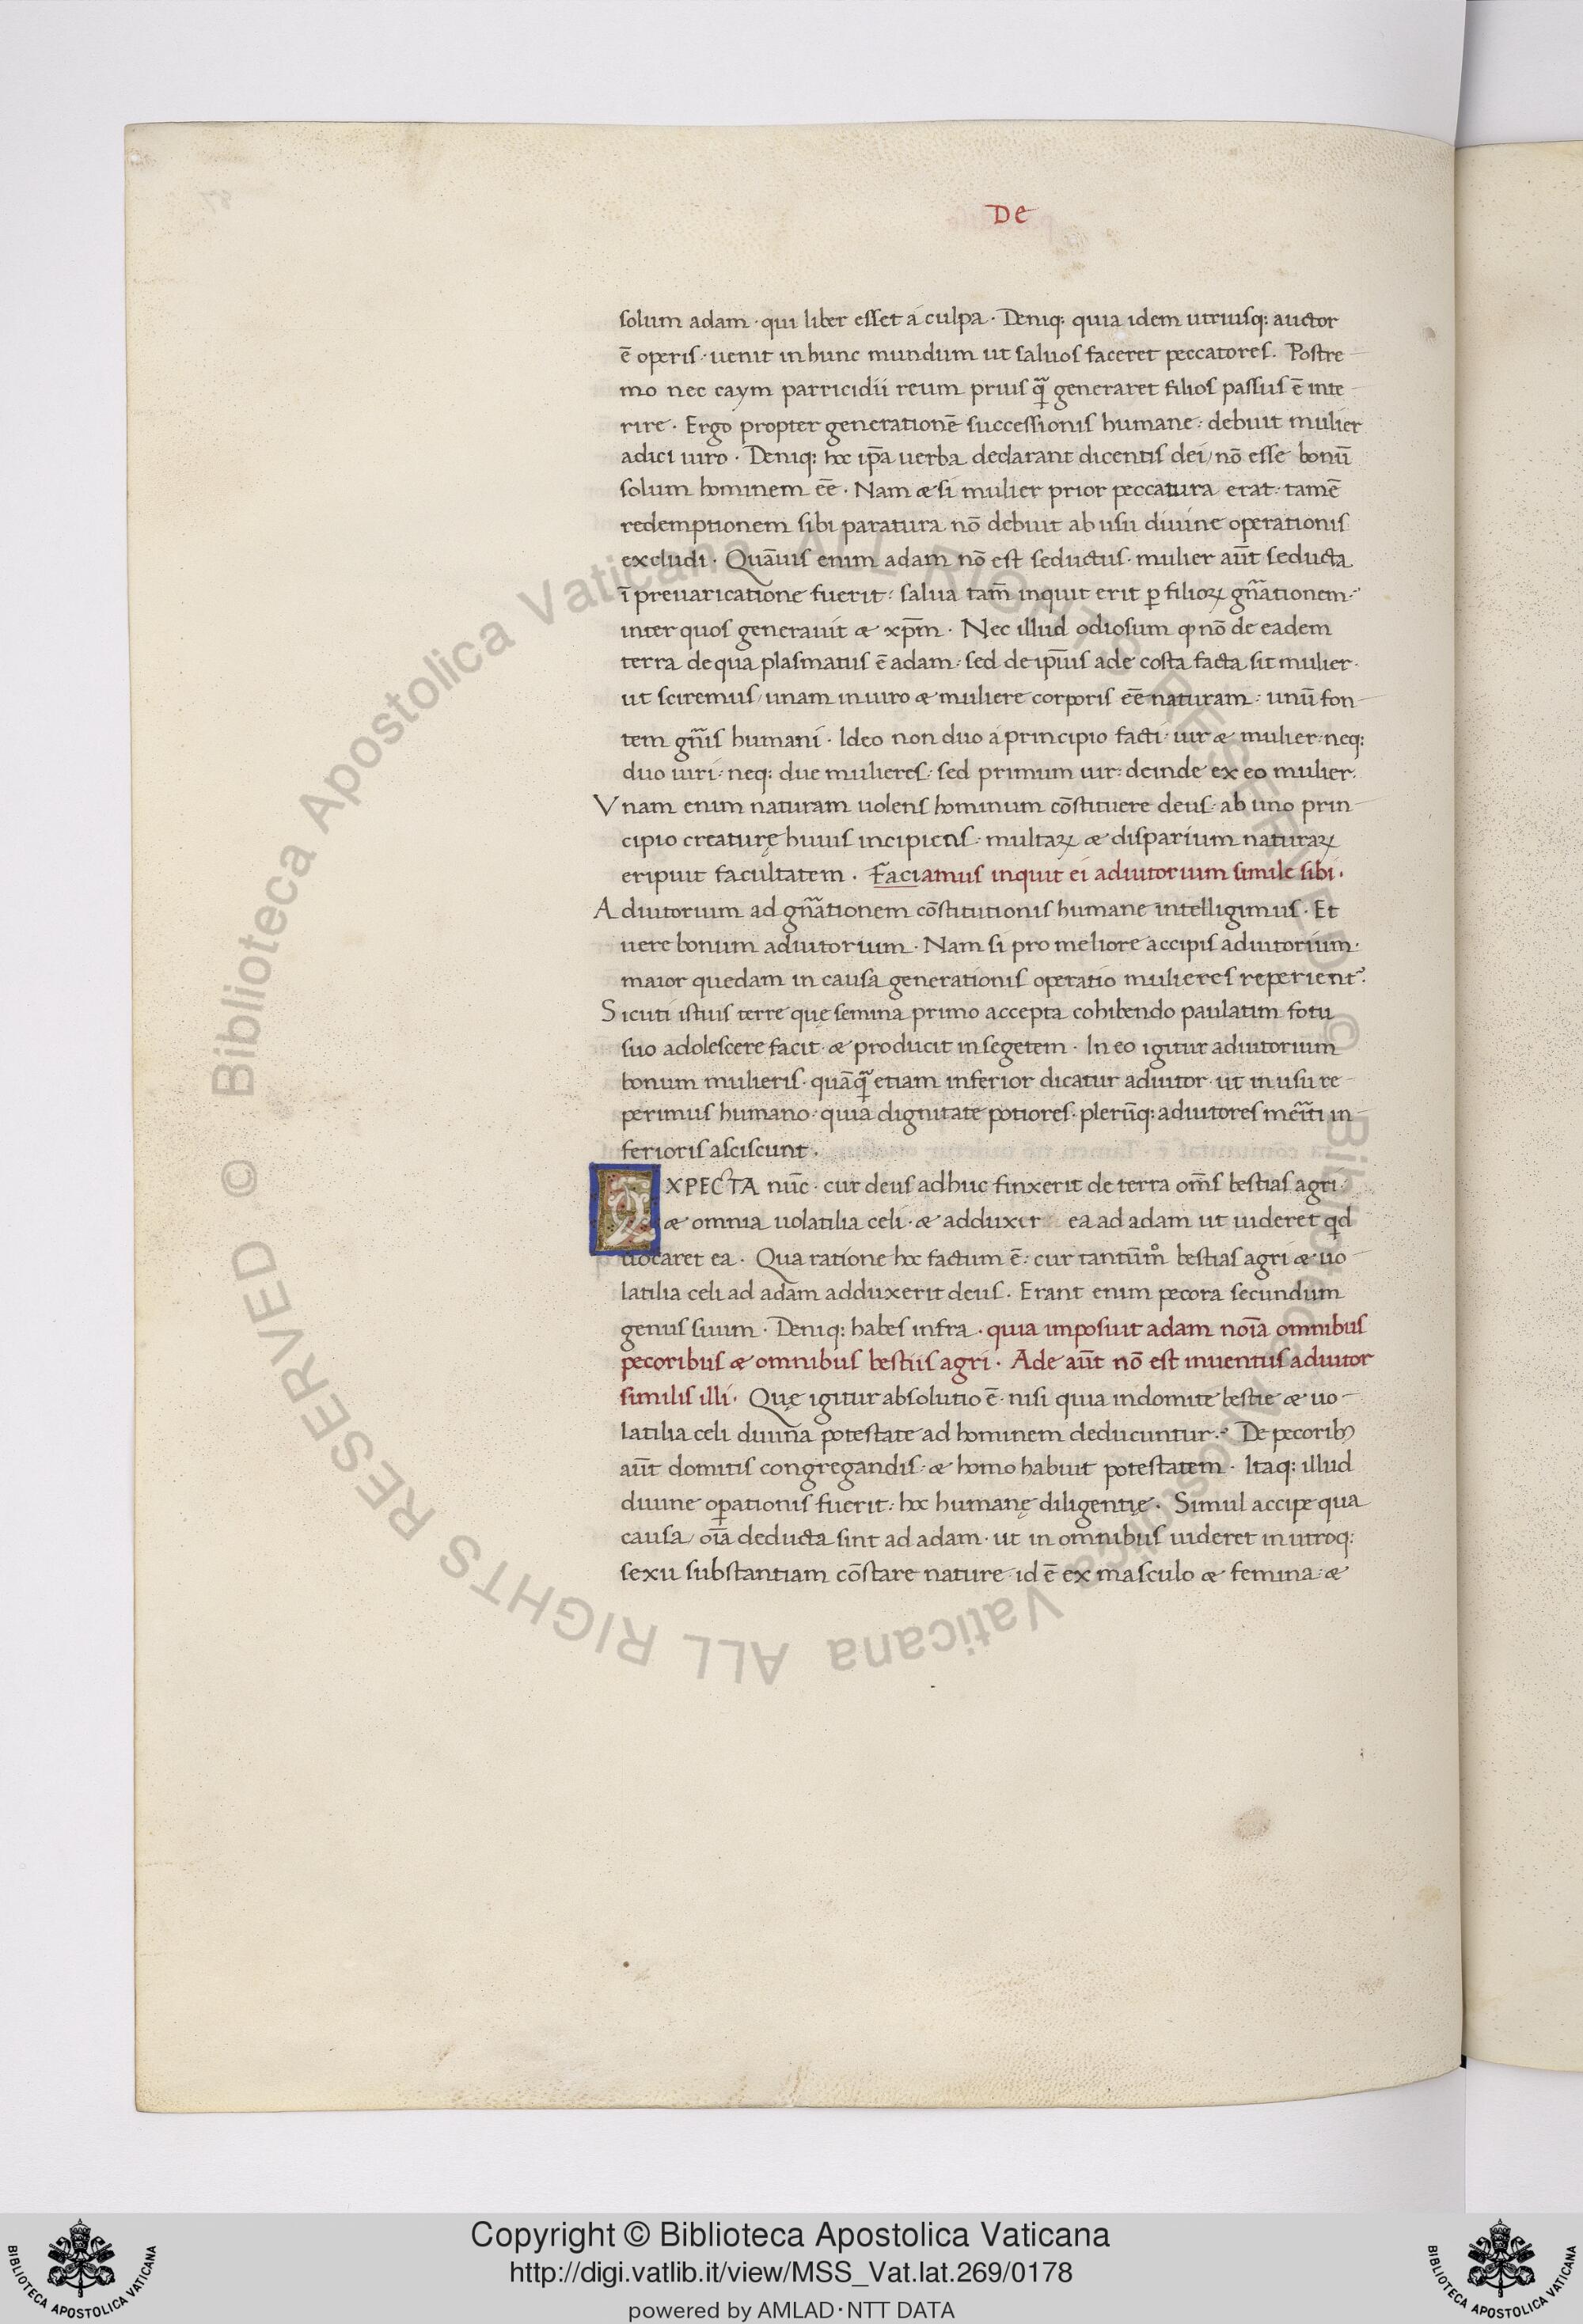 De
solum adam · qui liber esset a culpa · Deniq: quia idem utriusq: auctor
ē operis · uenit in hunc mundum ut saluos faceret peccatores. Postre-
mo nec caym parricidii reum prius q̄ generaret filios passus ē inte-
rire · Ergo propter generationē successionis humane: debuit mulier
adici uiro · Deniq: hoc ip̄a uerba declarant dicentis dei / nō esse bonū
solum hominem eē · Nam & si mulier prior peccatura erat: tamē
redemptionem sibi paratura nō debuit ab usu diuine operationis
excludi · Quāuis enim adam nō est seductus · mulier aūt seducta
ī preuaricatione fuerit: salua tam̄ inquit erit ꝑ filioꝝ gn̄ationem:
inter quos generauit & xp̄m · Nec illud odiosum ꝙ nō de eadem
terra de qua plasmatus ē adam: sed de ip̄ius ade costa facta sit mulier·
ut sciremus / unam in uiro & muliere corporis eē naturam: unū fon-
tem gn̄is humani · Ideo non duo a principio facti · uir & mulier: neq:
duo uiri: neq: due mulieres: sed primum uir: deinde ex eo mulier.
Vnam enim naturam uolens hominum cōstituere deus · ab uno prin-
cipio creaturę huius incipiens: multaꝝ & disparium naturaꝝ
eripuit facultatem · Faciamus inquit ei adiutorium simile sibi.
Adiutorium ad gn̄ationem cōstitutionis humane intelligimus · Et
uere bonum adiutorium · Nam si pro meliore accipis adiutorium·
maior quedam in causa generationis operatio mulieres reperient᷑.
Sicuti istius terre quę semina primo accepta cohibendo paulatim fotu
suo adolescere facit · & producit in segetem · In eo igitur adiutorium
bonum mulieris · quāq̄ etiam inferior dicatur adiutor · ut in usu re-
perimus humano: quia dignitate potiores · plerūq: adiutores mēiti in-
ferioris asciscunt.
EXPECTA nūc · cur deus adhuc finxerit de terra om̄s bestias agri·
& omnia uolatilia celi · & adduxit ea ad adam ut uideret qd̄
uocaret ea · Qua ratione hoc factum ē: cur tantūmº bestias agri & uo-
latilia celi ad adam adduxerit deus. Erant enim pecora secundum
genus suum · Deniq: habes infra · quia imposuit adam noīa omnibus
pecoribus & omnibus bestiis agri · Ade aūt nō est inuentus adiutor
similis illi. Quę igitur absolutio ē · nisi quia indomite bestie & uo-
latilia celi diuīna potestate ad hominem deducuntur. De pecoribꝫ
aūt domitis congregandis · & homo habuit potestatem · Itaq: illud
diuine oꝑationis fuerit: hoc humanę diligentię. Simul accipe qua
causa / oīa deducta sint ad adam · ut in omnibus uideret in utroq:
sexu substantiam cōstare nature · id ē ex masculo & femina: &
Copyright © Biblioteca Apostolica Vaticana
http://digi.vatlib.it/view/MSS_Vat.lat.269/0178
powered by AMLAD·NTT DATA
BIBLIOTECA APOSTOLICA VATICANA
BIBLIOTECA APOSTOLICA VATICANA
© Biblioteca Apostolica Vaticana ALL RIGHTS RESERVED © Biblioteca Apostolica Vaticana ALL RIGHTS RESERVED